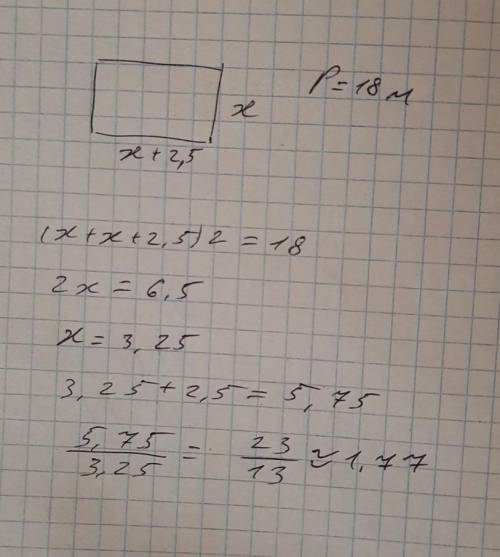 P = 18 м
x
x + 2,5
(x + x + 2,5) 2 = 18
2x = 6,5
x = 3,25
3,25 + 2,5 = 5,75
5,75/3,25 = 23/13 ≈ 1,77